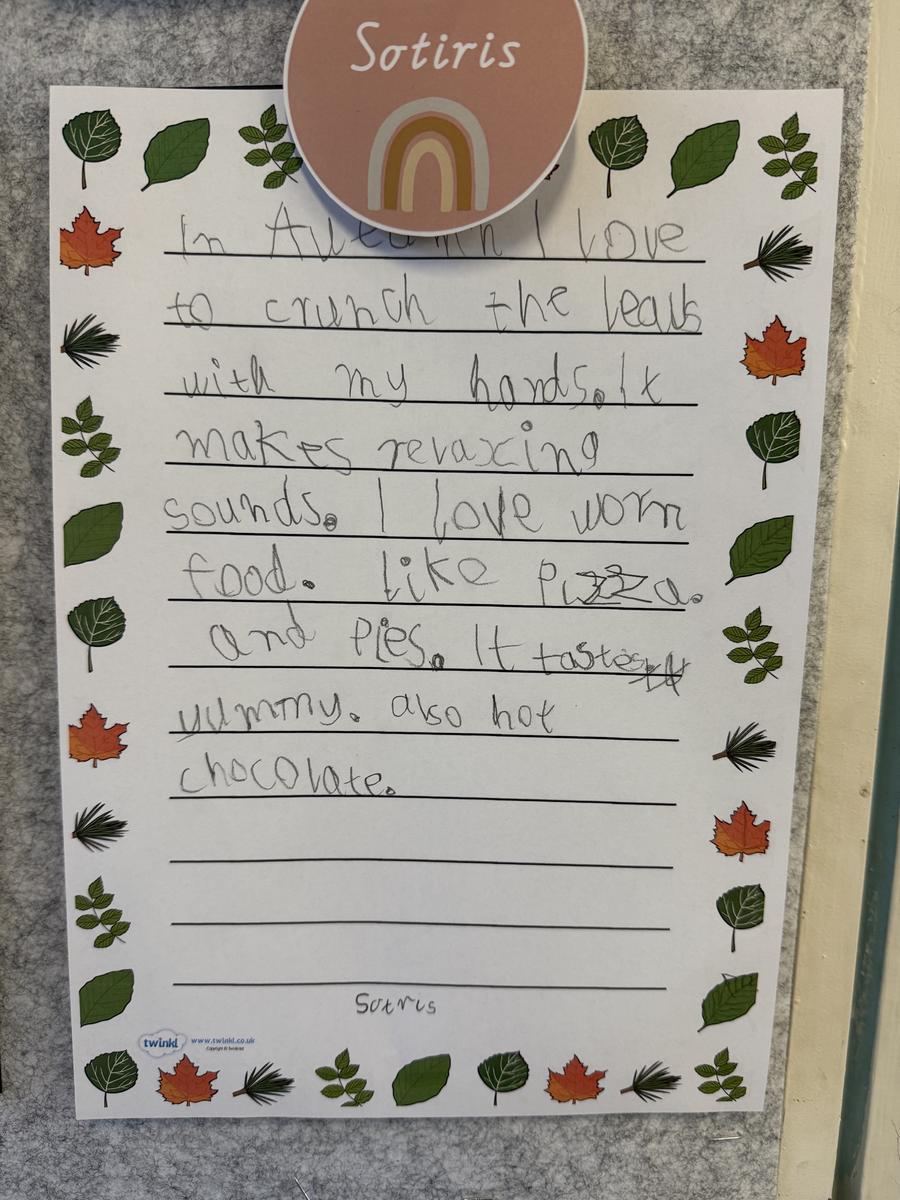 Sotiris
In Auteumn I love
to crunch the leavs
with my hands. It
makes relaxing
sounds. I love worm
food. like pizza.
and pies. It tastes
yummy. also hot
chocolate.
Sotris
twinkl www.twinkl.co.uk